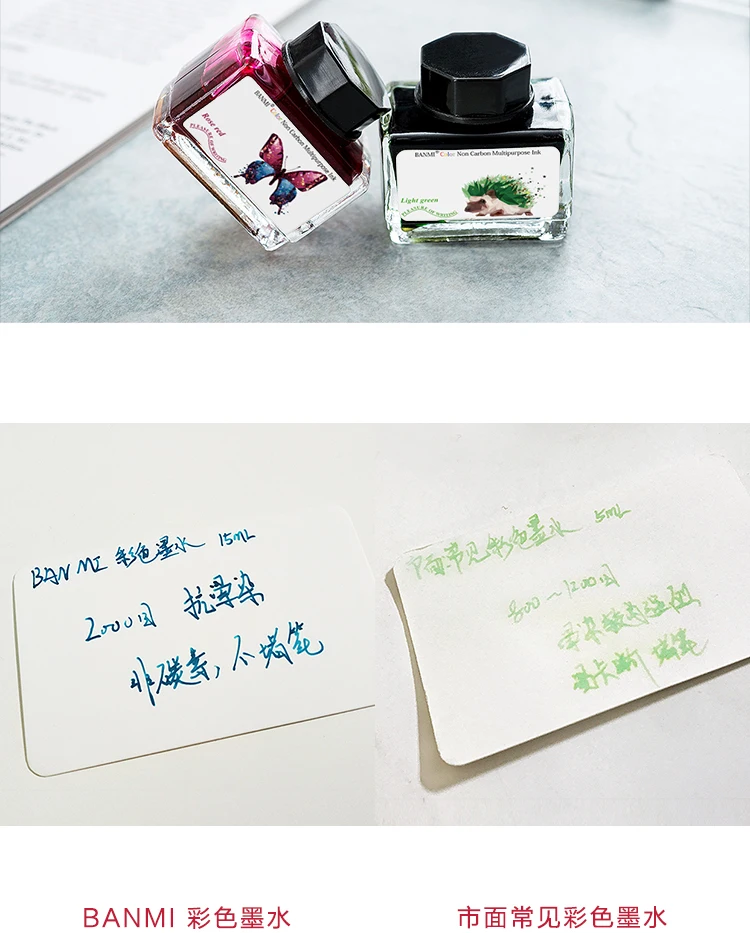 BANMI® Color Non Carbon Multipurpose Ink
Rose red
PLEASURE OF WRITING
BANMI® Color Non Carbon Multipurpose Ink
Light green
PLEASURE OF WRITING
BANMI 彩色墨水 15mL
2000目 抗晕染
非碳素，不堵笔
市面常见彩色墨水 5mL
800~1200目
晕染
易卡断 堵笔
BANMI 彩色墨水
市面常见彩色墨水